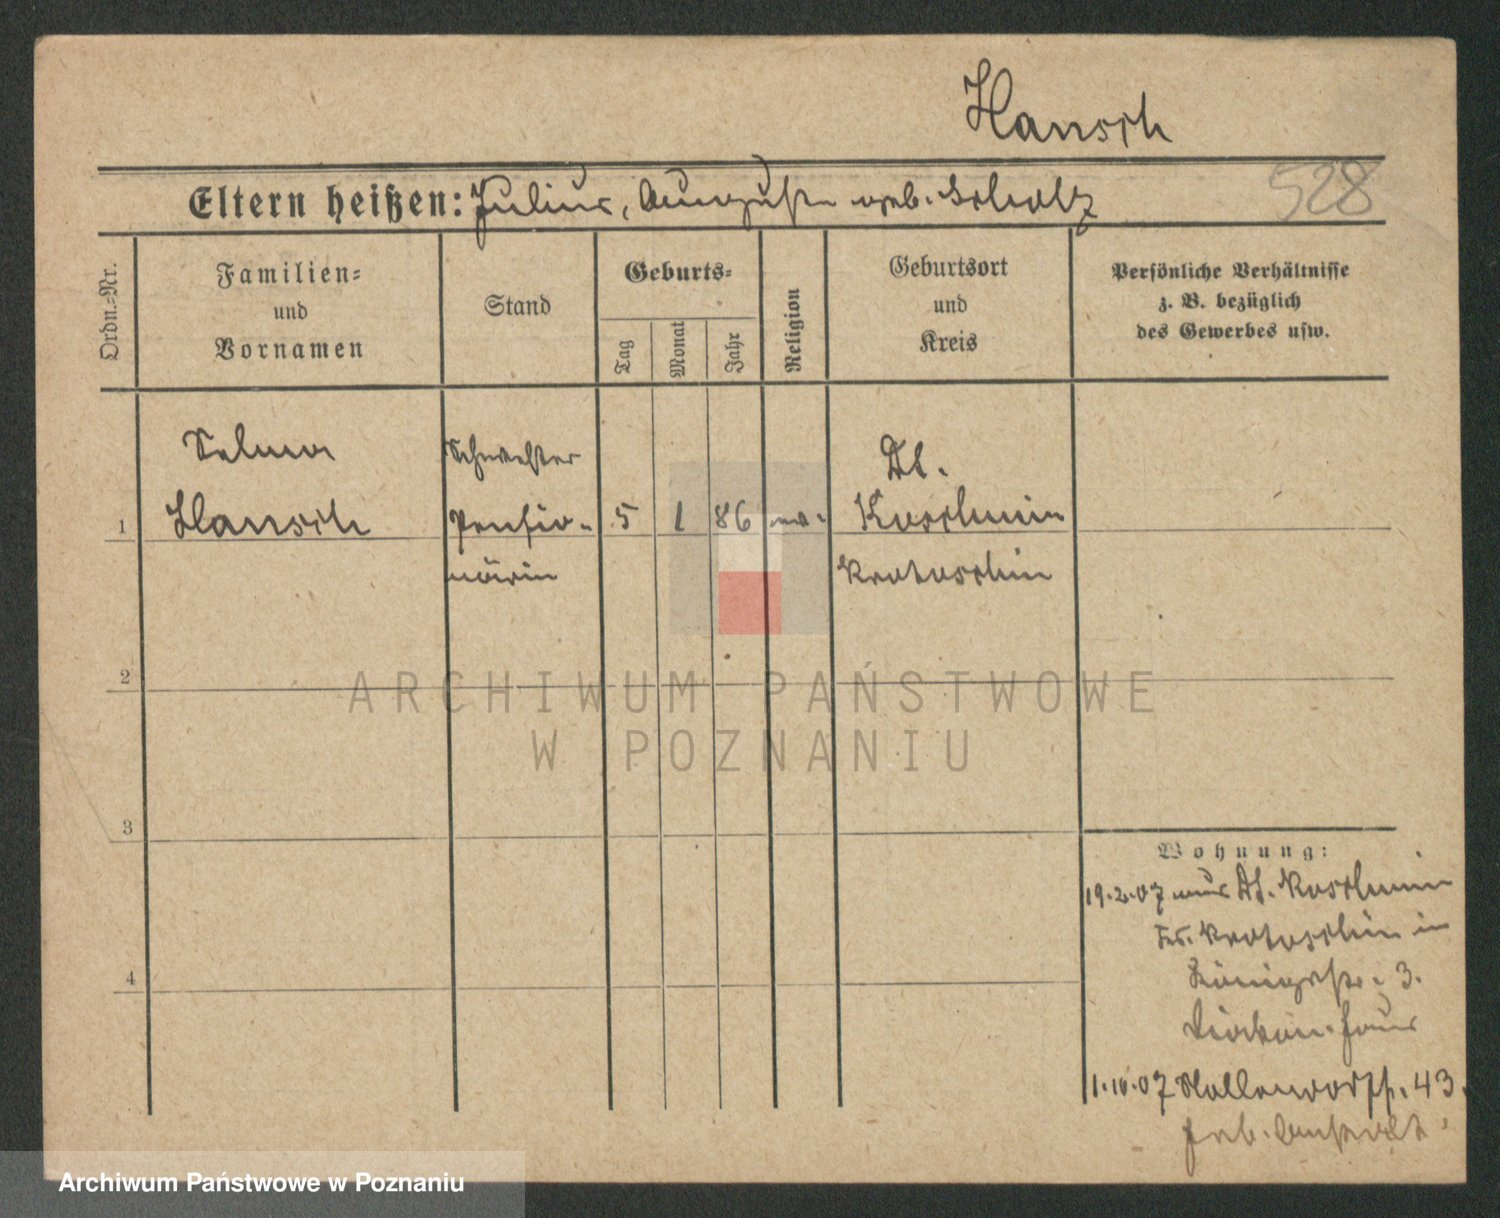 Hansch
Eltern heißen: Julius, Auguste geb. Scholz
528
Ordn.-Nr.
Familien-
und
Vornamen
Stand
Geburts-
Tag
Monat
Jahr
Religion
Geburtsort
und
Kreis
Persönliche Verhältnisse
z. B. bezüglich
des Gewerbes usw.
Selma
Hansch
Schwester
Pensio-
närin
1
5
1
86
ev.
Dt.
Koschmin
Krotoschin
2
3
4
Wohnung:
19.2.07 aus Dt. Koschmin
Krs. Krotoschin in
Königstr. 3.
Diakon. Haus
1.10.07 Hallerdorffstr. 43.
Heb. Anstalt.
ARCHIWUM PAŃSTWOWE
W POZNANIU
Archiwum Państwowe w Poznaniu